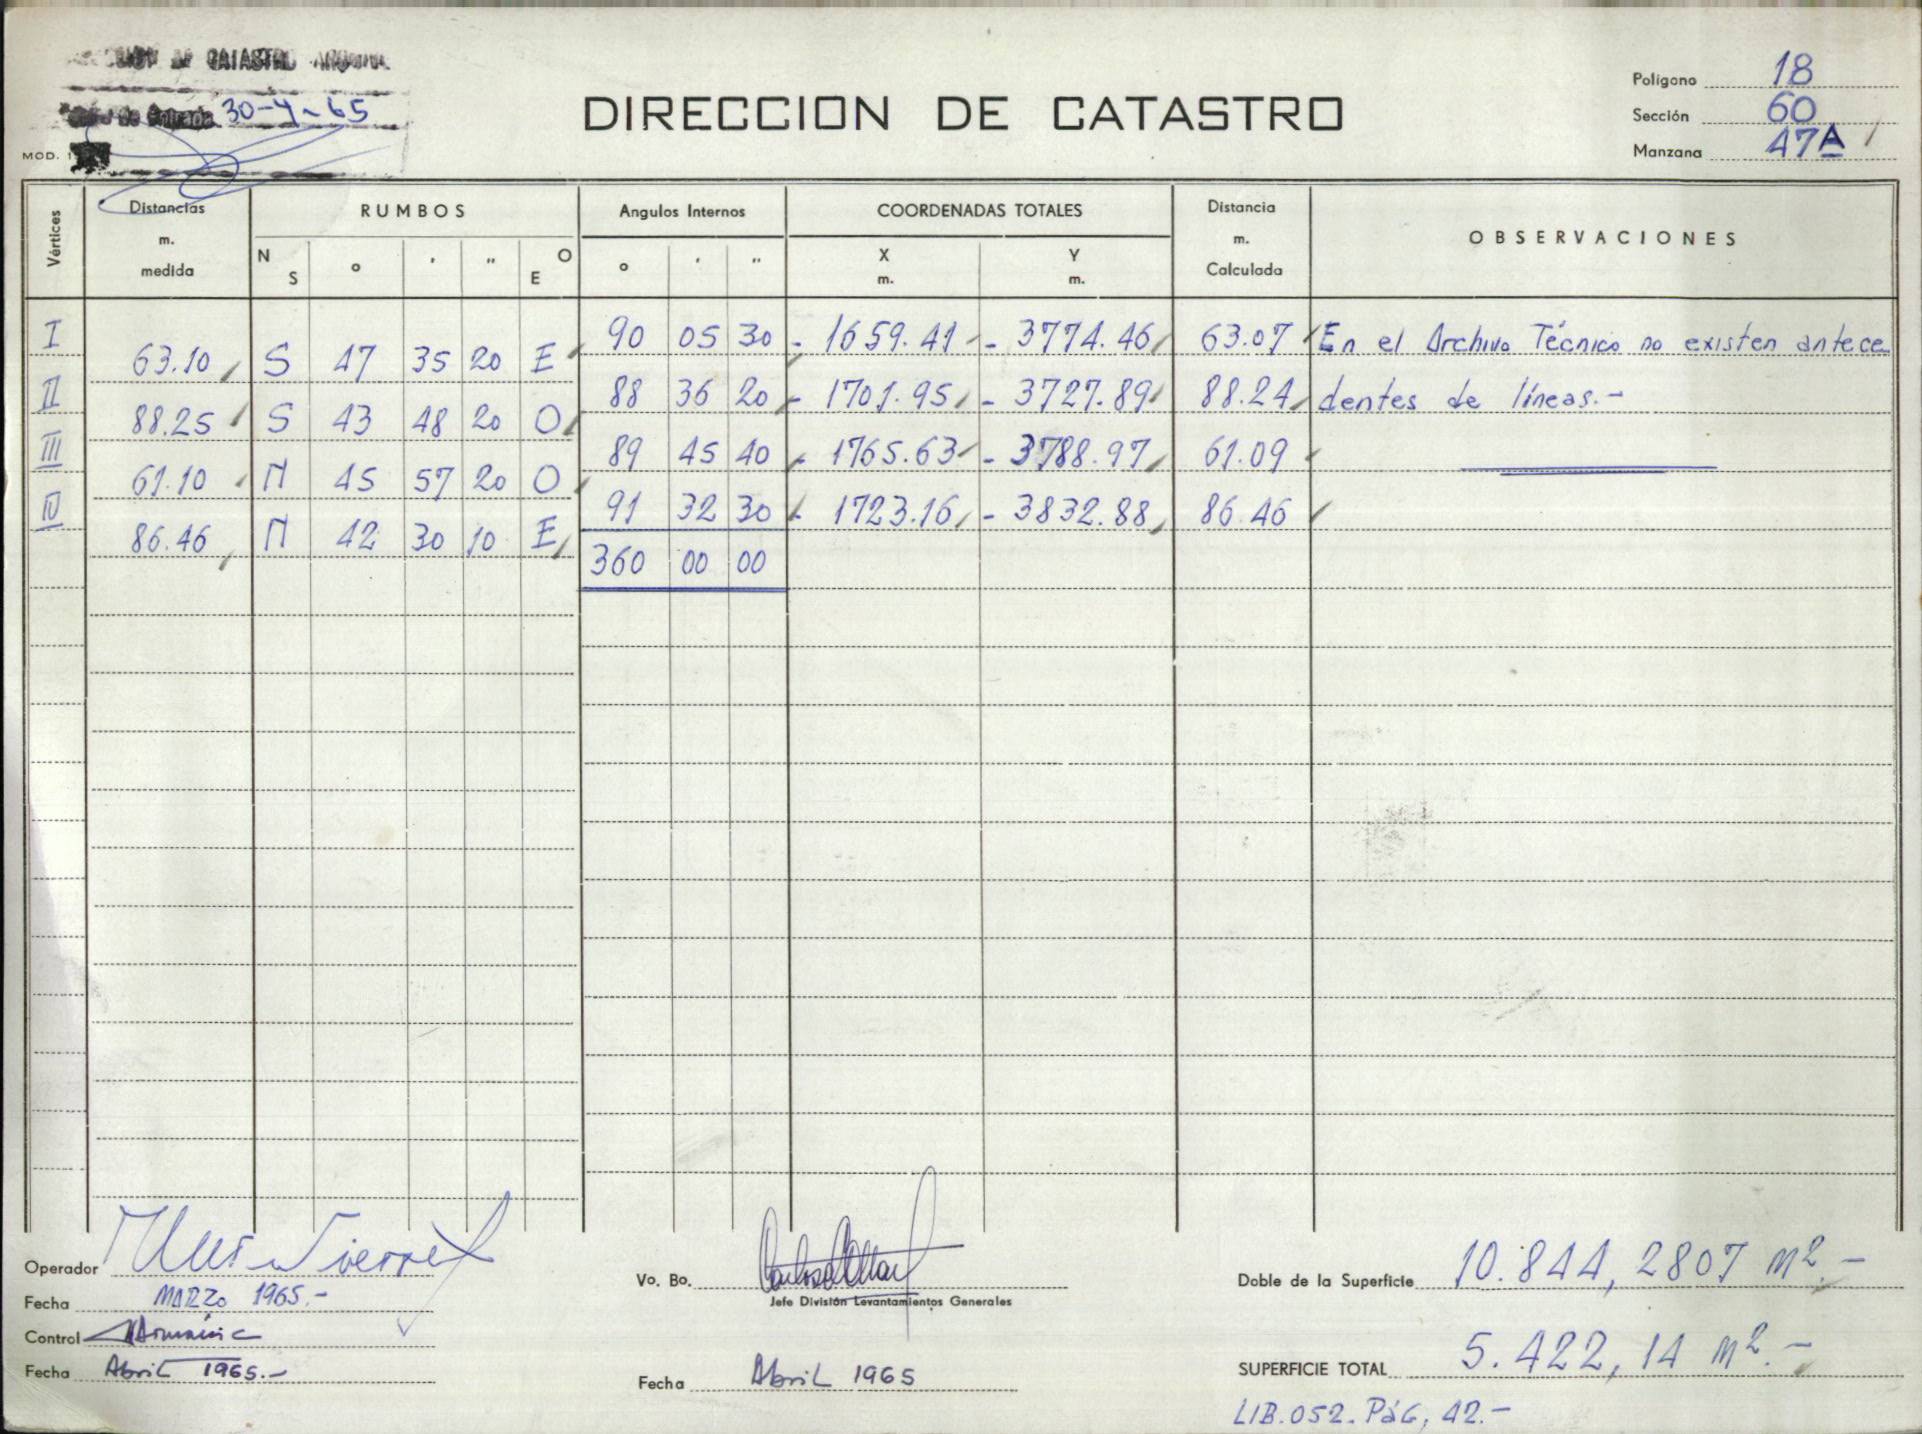 DE CATASTRO
de Entrada 30-4-65
MOD. 1
DIRECCION DE CATASTRO
Polígono 18
Sección 60
Manzana 47A
Vértices Distancias m. medida RUMBOS Angulos Internos COORDENADAS TOTALES Distancia m. Calculada OBSERVACIONES
N S ° ' " O E ° ' " X m. Y m.
I 90 05 30 - 1659.41 - 3774.46 63.07 En el Archivo Técnico no existen antece
63.10 S 47 35 20 E
II 88 36 20 - 1701.95 - 3727.89 88.24 dentes de líneas.-
88.25 S 43 48 20 O
III 89 45 40 - 1765.63 - 3788.97 61.09
61.10 N 45 57 20 O
IV 91 32 30 - 1723.16 - 3832.88 86.46
86.46 N 42 30 10 E
360 00 00
Operador
Fecha MARZO 1965.-
Control
Fecha Abril 1965.-
Vo. Bo.
Jefe División Levantamientos Generales
Fecha Abril 1965
Doble de la Superficie 10.844,2807 m2.-
SUPERFICIE TOTAL 5.422,14 m2.-
LIB.052.PÁG,42.-